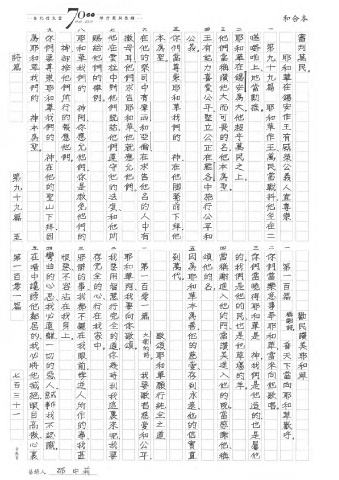 和合本
70
審判萬民。
耶和華在錫安作王有威榮公義人宜尊崇
第九十九篇 耶和華作王萬民當戰抖他坐在二
上地當動搖。
二 耶和華在錫安為大他超乎萬民之上。
三 他們當稱讚他大而可畏的名他本為聖。
四 王有能力喜愛公平堅立公正在雅各中施行公平和
公義。
五 你們當尊崇耶和華我們的 神在他腳凳前下拜他
本為聖。
六 在他的祭司中有摩西和亞倫在求告他名的人中有
撒母耳他們求告耶和華他就應允他們。
七 他在雲柱中對他們說話他們遵守他的法度和他所
賜給他們的律例。
八 耶和華我們的 神阿你應允他們你是赦免他們的
神卻按他們所行的報應他們。
九 你們要尊崇耶和華我們的 神在他的聖山下拜因
為耶和華我們的 神本為聖。
勸民讚美耶和華
一 第一百篇 稱謝詩 普天下當向耶和華歡呼。
二 你們當樂意事奉耶和華當來向他歌唱。
三 你們當曉得耶和華是 神我們是他造的也是屬他
的我們是他的民也是他草場的羊。
四 當稱謝進入他的門當讚美進入他的院當感謝他稱
頌他的名。
五 因為耶和華本為善他的慈愛存到永遠他的信實直
到萬代。
歌頌耶和華願行純全之道
一 第一百零一篇 大衛的詩 我要歌唱慈愛和公平
耶和華阿我要向你歌頌。
二 我要用智慧行完全的道你幾時到我這裏來呢我要
存完全的心行在我家中。
三 邪僻的事我都不擺在我眼前悖逆人所作的事我甚
恨惡不容沾在我身上。
四 彎曲的心思我必遠離一切的惡人我不認識。
五 在暗中讒謗他鄰居的我必將他滅絕眼目高傲心裏
詩篇 第九十九篇 至 第一百零一篇 七百三十一